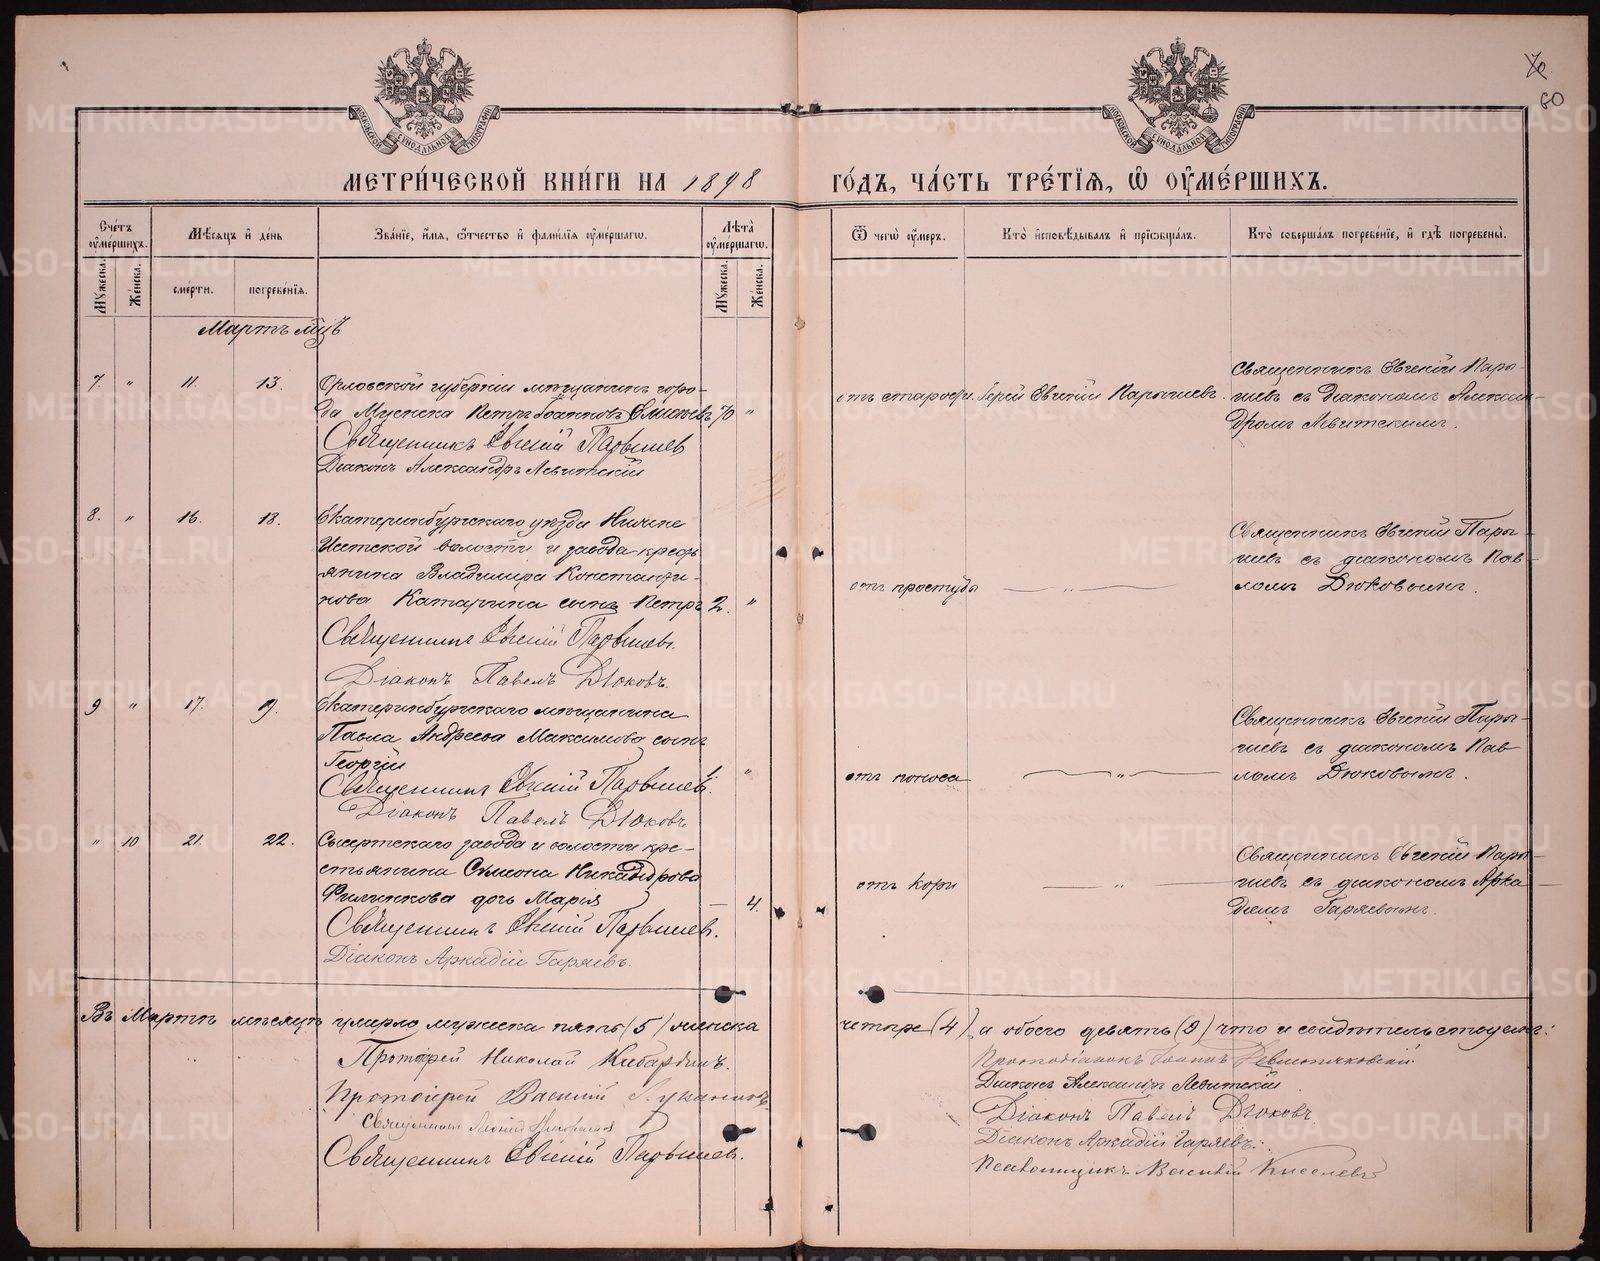 76
60
МОСКОВСКОЙ СѴНОДАЛЬНОЙ ТИПОГРАФІИ
МОСКОВСКОЙ СѴНОДАЛЬНОЙ ТИПОГРАФІИ
МЕТРИ́ЧЕСКОЙ КНИ́ГИ НА 1898 ГО́ДЪ, ЧА́СТЬ ТРЕ́ТІЯ, Ѡ ОУМЕ́РШИХЪ.
Сче́тъ оуме́ршихъ. Мѣсяцъ и де́нь Зва́ніе, и́мя, ѻтчество и фами́лія оуме́ршагѡ. Лѣта̀ оуме́ршагѡ. Ѿ чегѡ̀ оу́меръ. Кто̀ исповѣдывалъ и пріѡбща́лъ. Кто̀ соверша́лъ погребе́ніе, и гдѣ̀ погребены̀.
Му́жеска. Же́нска. сме́рти. погребе́нія. Му́жеска. Же́нска.
Мартъ мцъ
7. " 11. 13. Орловской губерніи мѣщанинъ горо-
да Мценска Петръ Іоанновъ 70 "
Священникъ Евгеній Парышев
Діаконъ Александръ Левитскій
отъ старости. Іерей Евгеній Парышевъ.
Священникъ Евгеній Пары-
шевъ съ діакономъ Алексан-
дромъ Левитскимъ.
8. " 16. 18. Екатеринбургскаго уѣзда Нижне
Исетской волости и завода кресть
янина Владиміра Константи-
нова Катаргина сынъ Петръ 2. "
Священникъ Евгеній Парышевъ.
Діаконъ Павелъ Дюковъ.
отъ простуды — " —
Священникъ Евгеній Пары-
шевъ съ діакономъ Пав-
ломъ Дюковымъ.
9 " 17. 19. Екатеринбургскаго мѣщанина
Павла Андреева Максимова сынъ
Георгій "
Священникъ Евгеній Парышевъ.
Діаконъ Павелъ Дюковъ
отъ поноса — " —
Священникъ Евгеній Пары-
шевъ съ діакономъ Пав
ломъ Дюковымъ.
" 10 21. 22. Сысертскаго завода и волости кре-
стьянина Симеона Никандрова
Филинкова дочь Марія — 4.
Священникъ Евгеній Парышев.
Діаконъ Аркадій Гаряевъ.
отъ кори — " —
Священникъ Евгеній Пары-
шевъ съ діакономъ Арка
діемъ Гаряевымъ.
Въ Мартѣ мѣсяцѣ умерло мужеска пять (5) женска четыре (4), а обоего девять (9) что и свидѣтельствуемъ:
Протоіерей Николай
Протоіерей Василій
Священникъ
Священникъ Евгеній Парышев.
Протодіаконъ Іоаннъ
Діаконъ Александръ Левитскій
Діаконъ Павелъ Дюковъ
Діаконъ Аркадій Гаряевъ.
Псаломщикъ Василій Киселевъ
METRIKI.GASO-URAL.RU